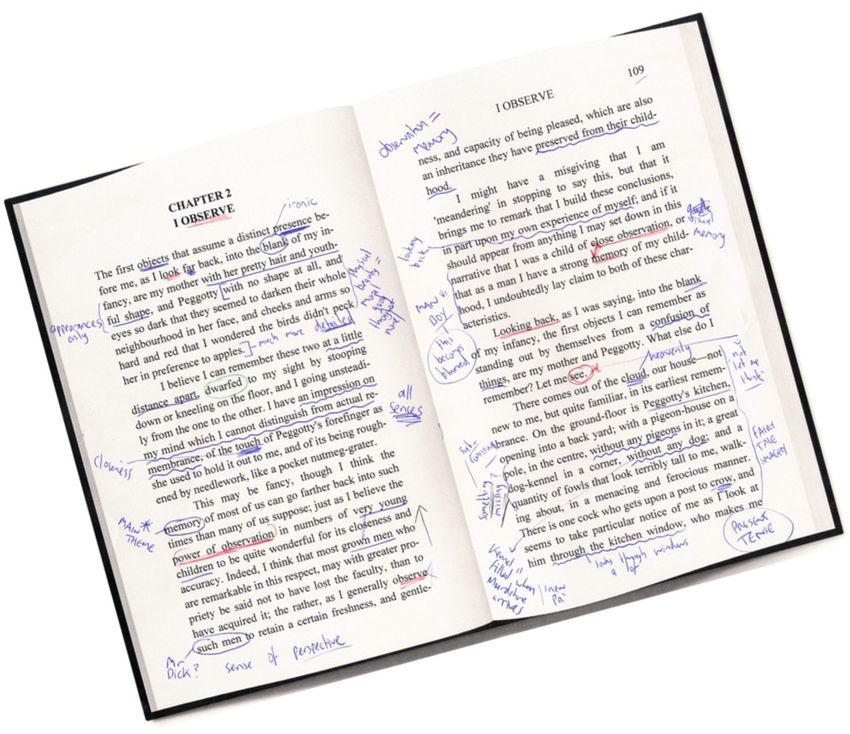 CHAPTER 2
I OBSERVE
ironic
The first objects that assume a distinct presence be-
fore me, as I look far back, into the blank of my in-
fancy, are my mother with her pretty hair and youth-
ful shape, and Peggotty with no shape at all, and
eyes so dark that they seemed to darken their whole
neighbourhood in her face, and cheeks and arms so
hard and red that I wondered the birds didn't peck
her in preference to apples.
appearances
only
much more detailed
I believe I can remember these two at a little
distance apart, dwarfed to my sight by stooping
down or kneeling on the floor, and I going unsteadi-
ly from the one to the other. I have an impression on
my mind which I cannot distinguish from actual re-
membrance, of the touch of Peggotty's forefinger as
she used to hold it out to me, and of its being rough-
ened by needlework, like a pocket nutmeg-grater.
all
senses
Closeness
This may be fancy, though I think the
memory of most of us can go farther back into such
times than many of us suppose; just as I believe the
power of observation in numbers of very young
children to be quite wonderful for its closeness and
accuracy. Indeed, I think that most grown men who
are remarkable in this respect, may with greater pro-
priety be said not to have lost the faculty, than to
have acquired it; the rather, as I generally observe
such men to retain a certain freshness, and gentle-
MAIN *
THEME
Mr
Dick?
sense of perspective
109
I OBSERVE
observation =
memory
ness, and capacity of being pleased, which are also
an inheritance they have preserved from their child-
hood.
I might have a misgiving that I am
'meandering' in stopping to say this, but that it
brings me to remark that I build these conclusions,
in part upon my own experience of myself; and if it
should appear from anything I may set down in this
narrative that I was a child of close observation, or
that as a man I have a strong memory of my child-
hood, I undoubtedly lay claim to both of these char-
acteristics.
looking
back
memory
MAN v.
BOY
this
becomes
blurred
Looking back, as I was saying, into the blank
of my infancy, the first objects I can remember as
standing out by themselves from a confusion of
things, are my mother and Peggotty. What else do I
remember? Let me see.
heavenly
There comes out of the cloud, our house—not
new to me, but quite familiar, in its earliest remem-
brance. On the ground-floor is Peggotty's kitchen,
opening into a back yard; with a pigeon-house on a
pole, in the centre, without any pigeons in it; a great
dog-kennel in a corner, without any dog; and a
quantity of fowls that look terribly tall to me, walk-
ing about, in a menacing and ferocious manner.
There is one cock who gets upon a post to crow, and
seems to take particular notice of me as I look at
him through the kitchen window, who makes me
something
missing?
FAIRY
TALE
IMAGERY
PRESENT
TENSE
looks through windows
a lot
Kennel =
filled when
Murdstone
arrives
/ new
Pa